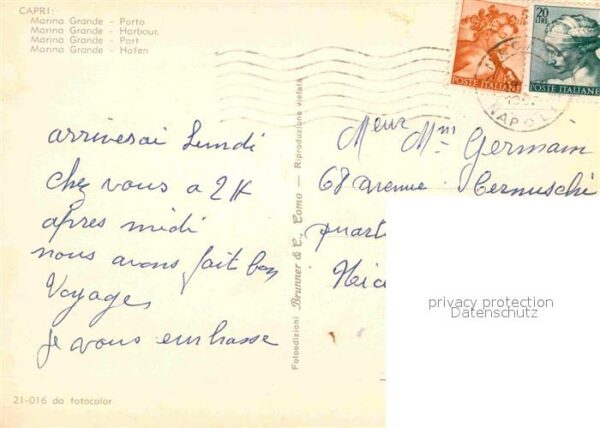 CAPRI:
Marina Grande - Porto
Marina Grande - Harbour
Marina Grande - Port
Marina Grande - Hafen
arriverai Lundi
chez vous a 2H
après midi
nous avons fait bon
Voyages
je vous embrasse
21-016 da fotocolor
Fotoedizioni Brunner & C., Como — Riproduzione vietata
20
LIRE
POSTE ITALIANE
POSTE ITALIANE
NAPOLI
Meur Mm Germain
68 avenue Cernuschi
quart
Nic
privacy protection
Datenschutz